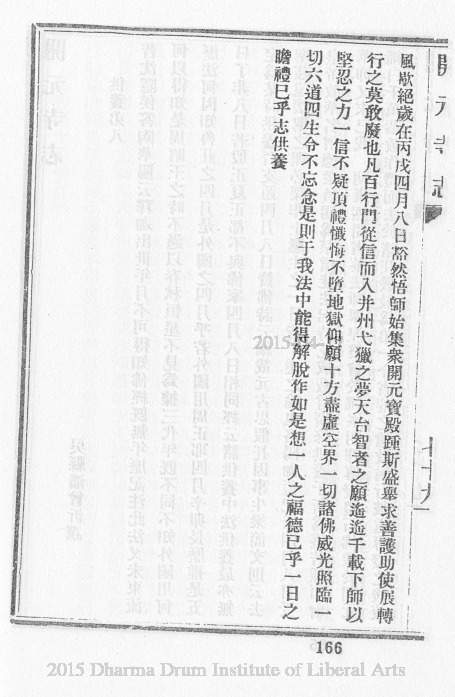 開元寺志
七十九
風歇絕歲在丙戌四月八日豁然悟師始集衆開元寶殿踵斯盛舉求善護助使展轉
行之莫敢廢也凡百行門從信而入并州弋獵之夢天台智者之願遙遙千載下師以
堅忍之力一信不疑頂禮懺悔不墮地獄仰願十方盡虛空界一切諸佛威光照臨一
切六道四生令不忘念是則于我法中能得解脫作如是想一人之福德已乎一日之
瞻禮已乎志供養
166
2015 Dharma Drum Institute of Liberal Arts